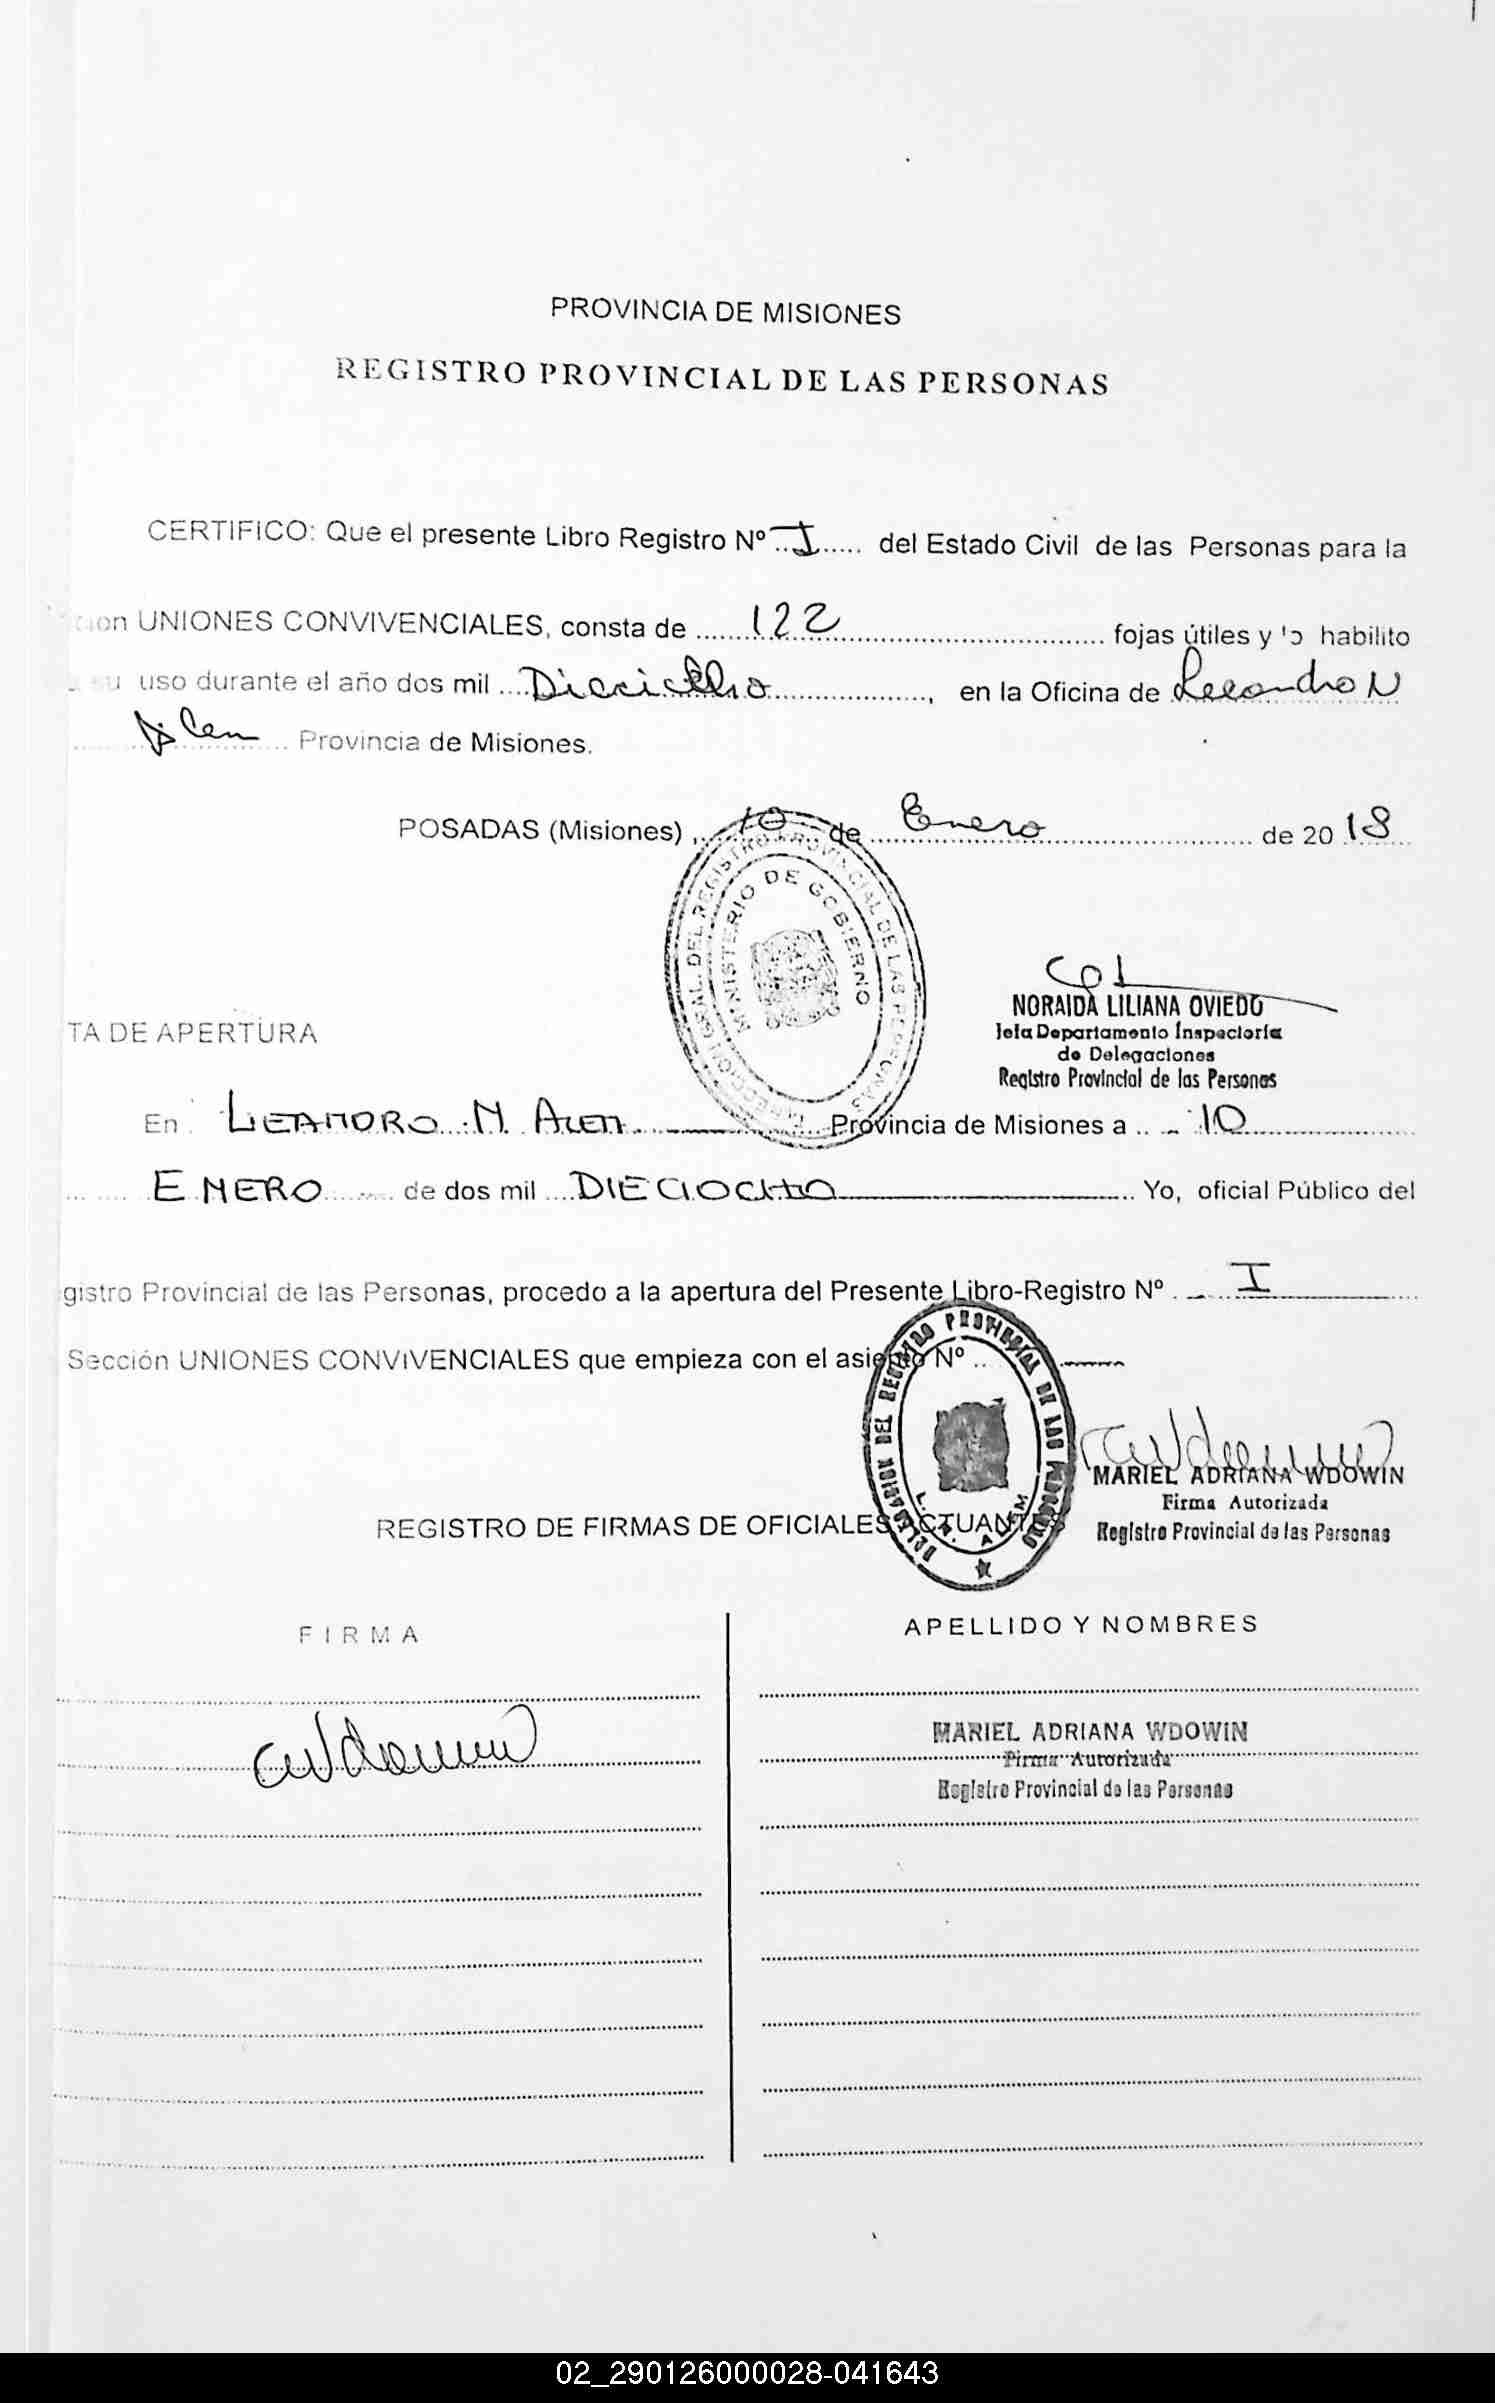 PROVINCIA DE MISIONES
REGISTRO PROVINCIAL DE LAS PERSONAS
CERTIFICO: Que el presente Libro Registro Nº I del Estado Civil de las Personas para la
ción UNIONES CONVIVENCIALES, consta de 122 fojas útiles y lo habilito
su uso durante el año dos mil Dieciocho, en la Oficina de Leandro N
Alem Provincia de Misiones.
POSADAS (Misiones), 10 de Enero de 2018
DIRECCION GRAL. DEL REGISTRO PROVINCIAL DE LAS PERSONAS
MINISTERIO DE GOBIERNO
NORAIDA LILIANA OVIEDO
Jefa Departamento Inspectoría
de Delegaciones
Registro Provincial de las Personas
TA DE APERTURA
En LEANDRO N. ALEM Provincia de Misiones a 10
ENERO de dos mil DIECIOCHO Yo, oficial Público del
gistro Provincial de las Personas, procedo a la apertura del Presente Libro-Registro Nº I
Sección UNIONES CONVIVENCIALES que empieza con el asiento Nº
DELEGACION DEL REGISTRO PROVINCIAL DE LAS PERSONAS
L. N. ALEM
MARIEL ADRIANA WDOWIN
Firma Autorizada
Registro Provincial de las Personas
REGISTRO DE FIRMAS DE OFICIALES ACTUANTES
FIRMA
APELLIDO Y NOMBRES
MARIEL ADRIANA WDOWIN
Firma Autorizada
Registro Provincial de las Personas
02_290126000028-041643